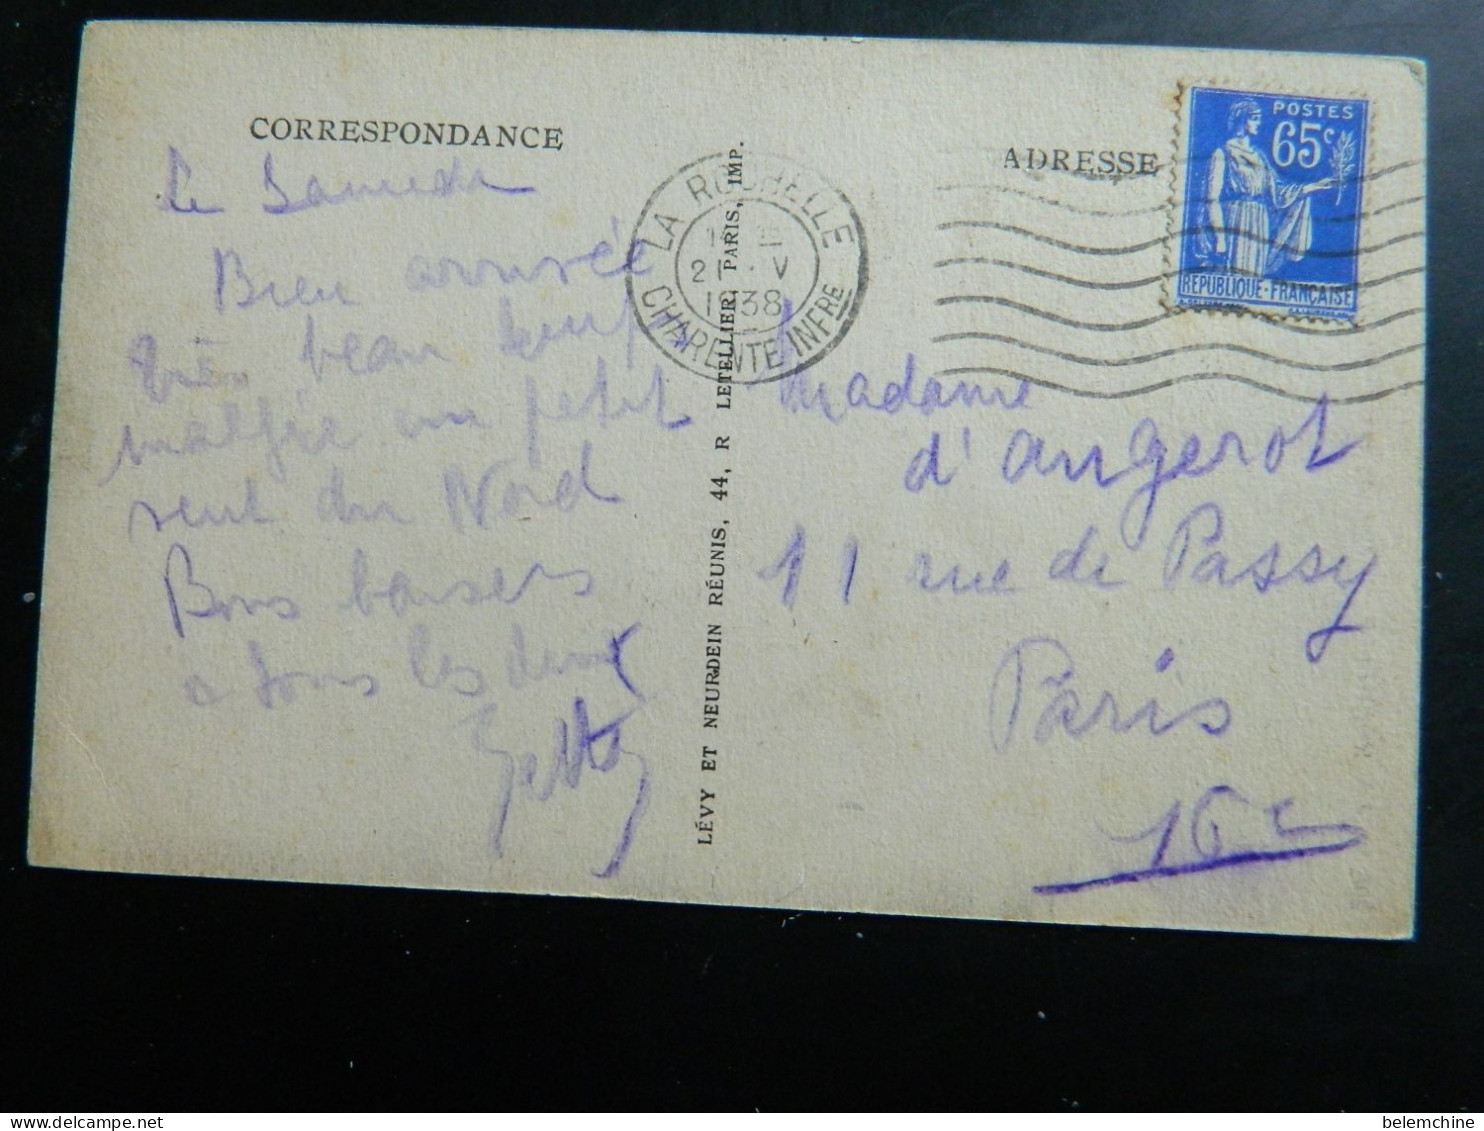 CORRESPONDANCE
Le Samedi
Bien arrivée
très beau temps
malgré un petit
vent du Nord
Bons baisers
a tous les deux
LÉVY ET NEURDEIN RÉUNIS, 44, R LETELLIER, PARIS, IMP.
LA ROCHELLE
21 V
1938
CHARENTE INFRE
ADRESSE
POSTES
65c
REPUBLIQUE-FRANÇAISE
Madame
d'angerot
11 rue de Passy
Paris
16e
belemchine